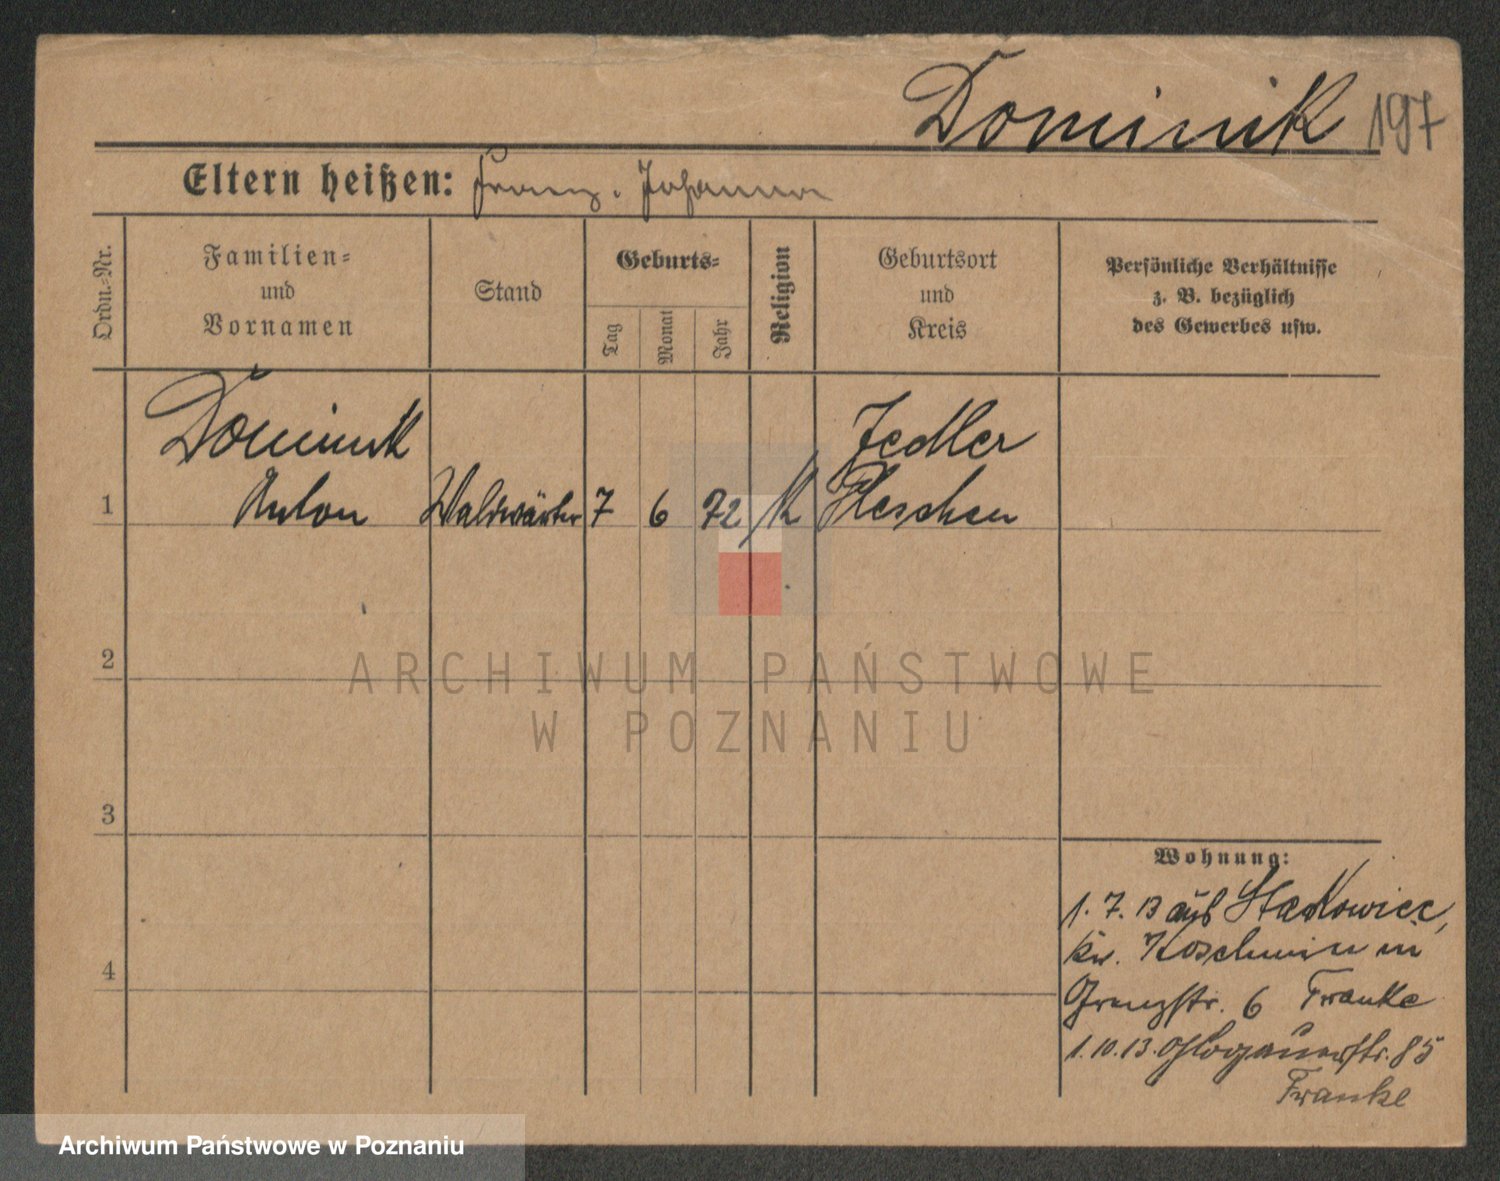 Dominik 197
Eltern heißen: Franz. Johanna
Ordn.-Nr.
Familien-
und
Vornamen
Stand
Geburts-
Tag
Monat
Jahr
Religion
Geburtsort
und
Kreis
Persönliche Verhältnisse
z. B. bezüglich
des Gewerbes usw.
Dominik Jedler
1 Anton Waldwärter 7 6 72 K Pleschen
2
ARCHIWUM PAŃSTWOWE
W POZNANIU
3
Wohnung:
1. 7. 13 aus
4 Kr. Koschmin in
Grenzstr. 6 Franke
1. 10. 13. Glogauerstr. 85
Franke
Archiwum Państwowe w Poznaniu